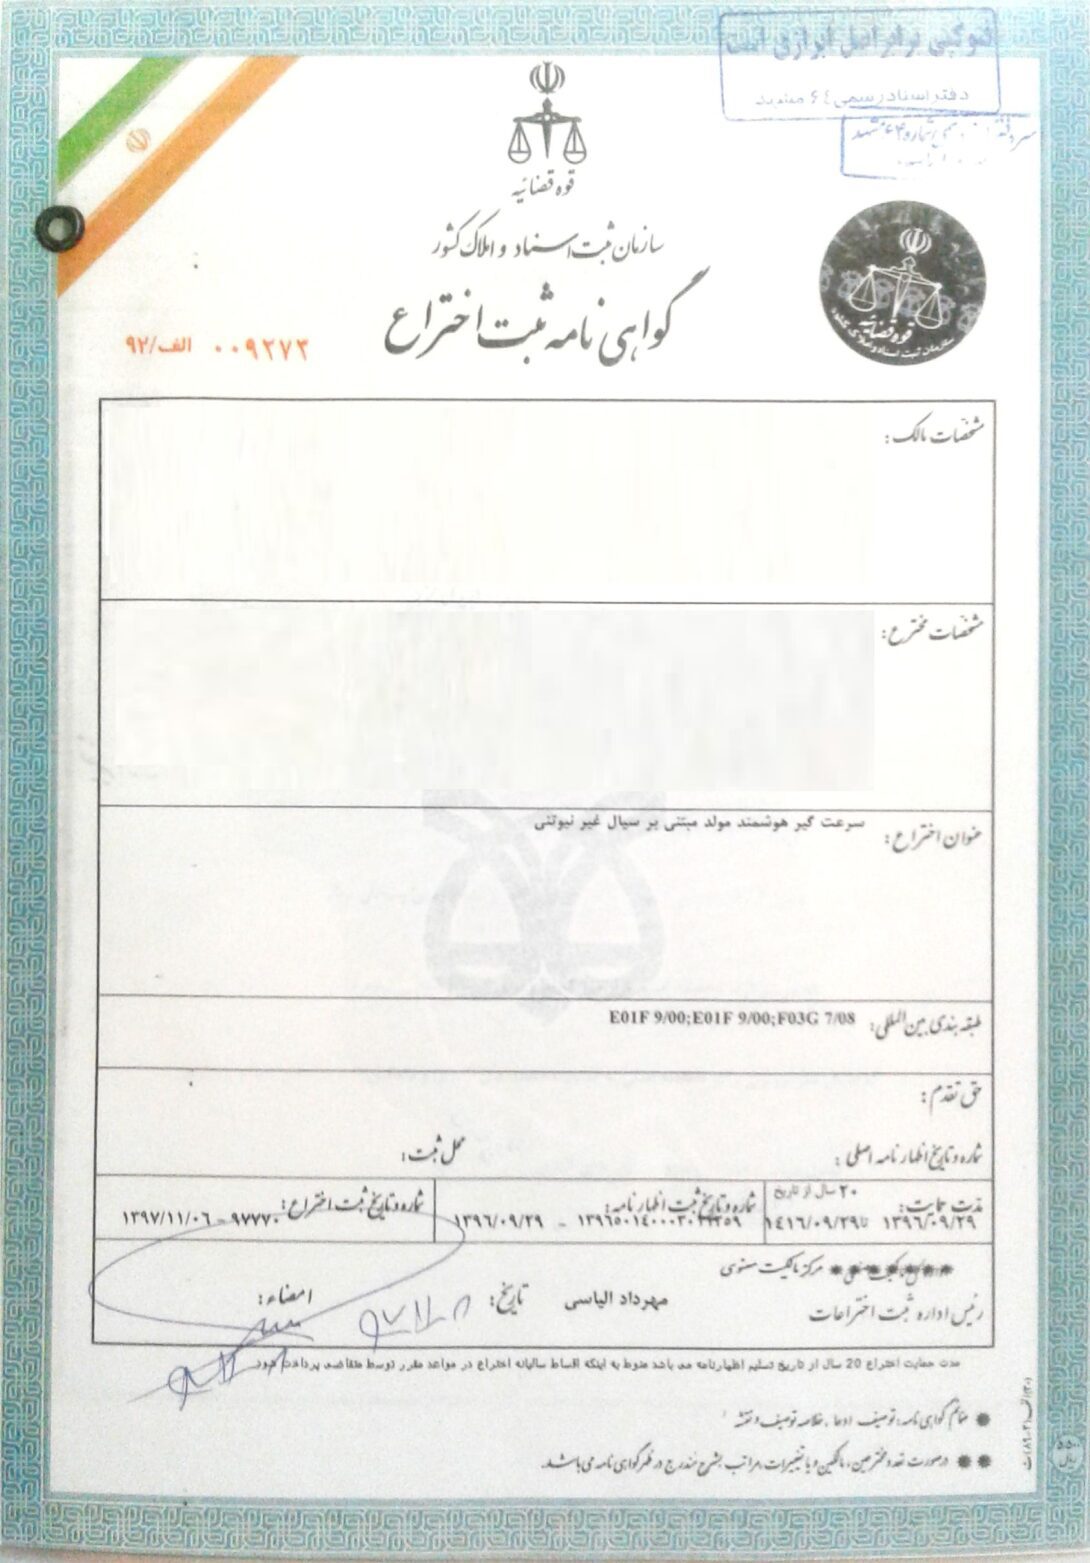 فتوکپی برابر اصل ابرازی است
دفتر اسناد رسمی ۶٤ مشهد
شماره ۶۴ مشهد
قوه قضائیه
سازمان ثبت اسناد و املاک کشور
گواهی نامه ثبت اختراع
قوه قضائیه
سازمان ثبت اسناد و املاک کشور
۰۰۹۲۷۲ الف/۹۲
مشخصات مالک:
مشخصات مخترع:
عنوان اختراع: سرعت گیر هوشمند مولد مبتنی بر سیال غیر نیوتنی
طبقه بندی بین المللی: E01F 9/00;E01F 9/00;F03G 7/08
حق تقدم:
شماره و تاریخ اظهارنامه اصلی: محل ثبت:
مدت حمایت: ۲۰ سال از تاریخ
۱۳۹۶/۰۹/۲۹ تا ۱۴۱۶/۰۹/۲۹
شماره و تاریخ ثبت اظهارنامه:
۱۳۹۶/۰۹/۲۹
شماره و تاریخ ثبت اختراع:
۹۷۷۷۰ - ۱۳۹۷/۱۱/۰۶
مرکز مالکیت معنوی
رئیس اداره ثبت اختراعات مهرداد الیاسی تاریخ: ۹۷/۱۱/۸ امضاء:
مدت حمایت اختراع 20 سال از تاریخ تسلیم اظهارنامه می باشد منوط به اینکه اقساط سالیانه اختراع در مواعد مقرر توسط متقاضی پرداخت شود.
✹ ضمائم گواهی نامه: توصیف، ادعا، خلاصه توصیف و نقشه
✹✹ درصورت تعدد مخترعین، مالکین و یا تغییرات، مراتب بشرح مندرج در ظهر گواهی نامه می باشد.
۵۵۰۰ ریال